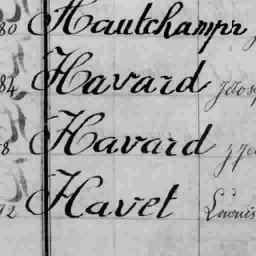 80 Hautchamps
84 Havard
8 Havard
12 Havet Louis